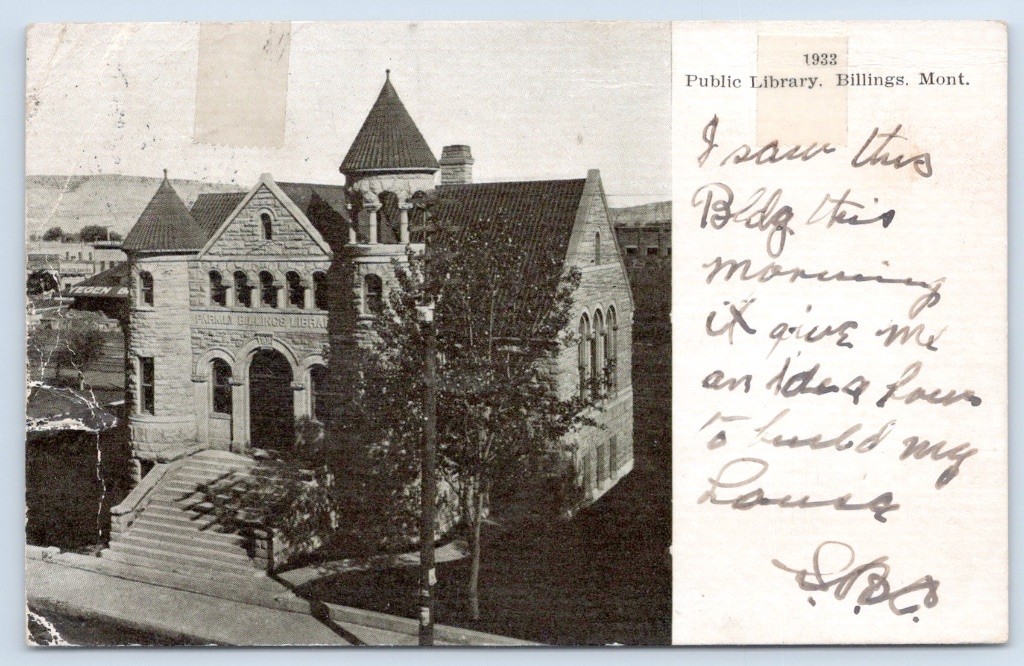 1933
Public Library, Billings, Mont.
I saw this
Bldg this
morning
it give me
an Idea how
to build my
House
S.B.C.
PARMLY BILLINGS LIBRARY